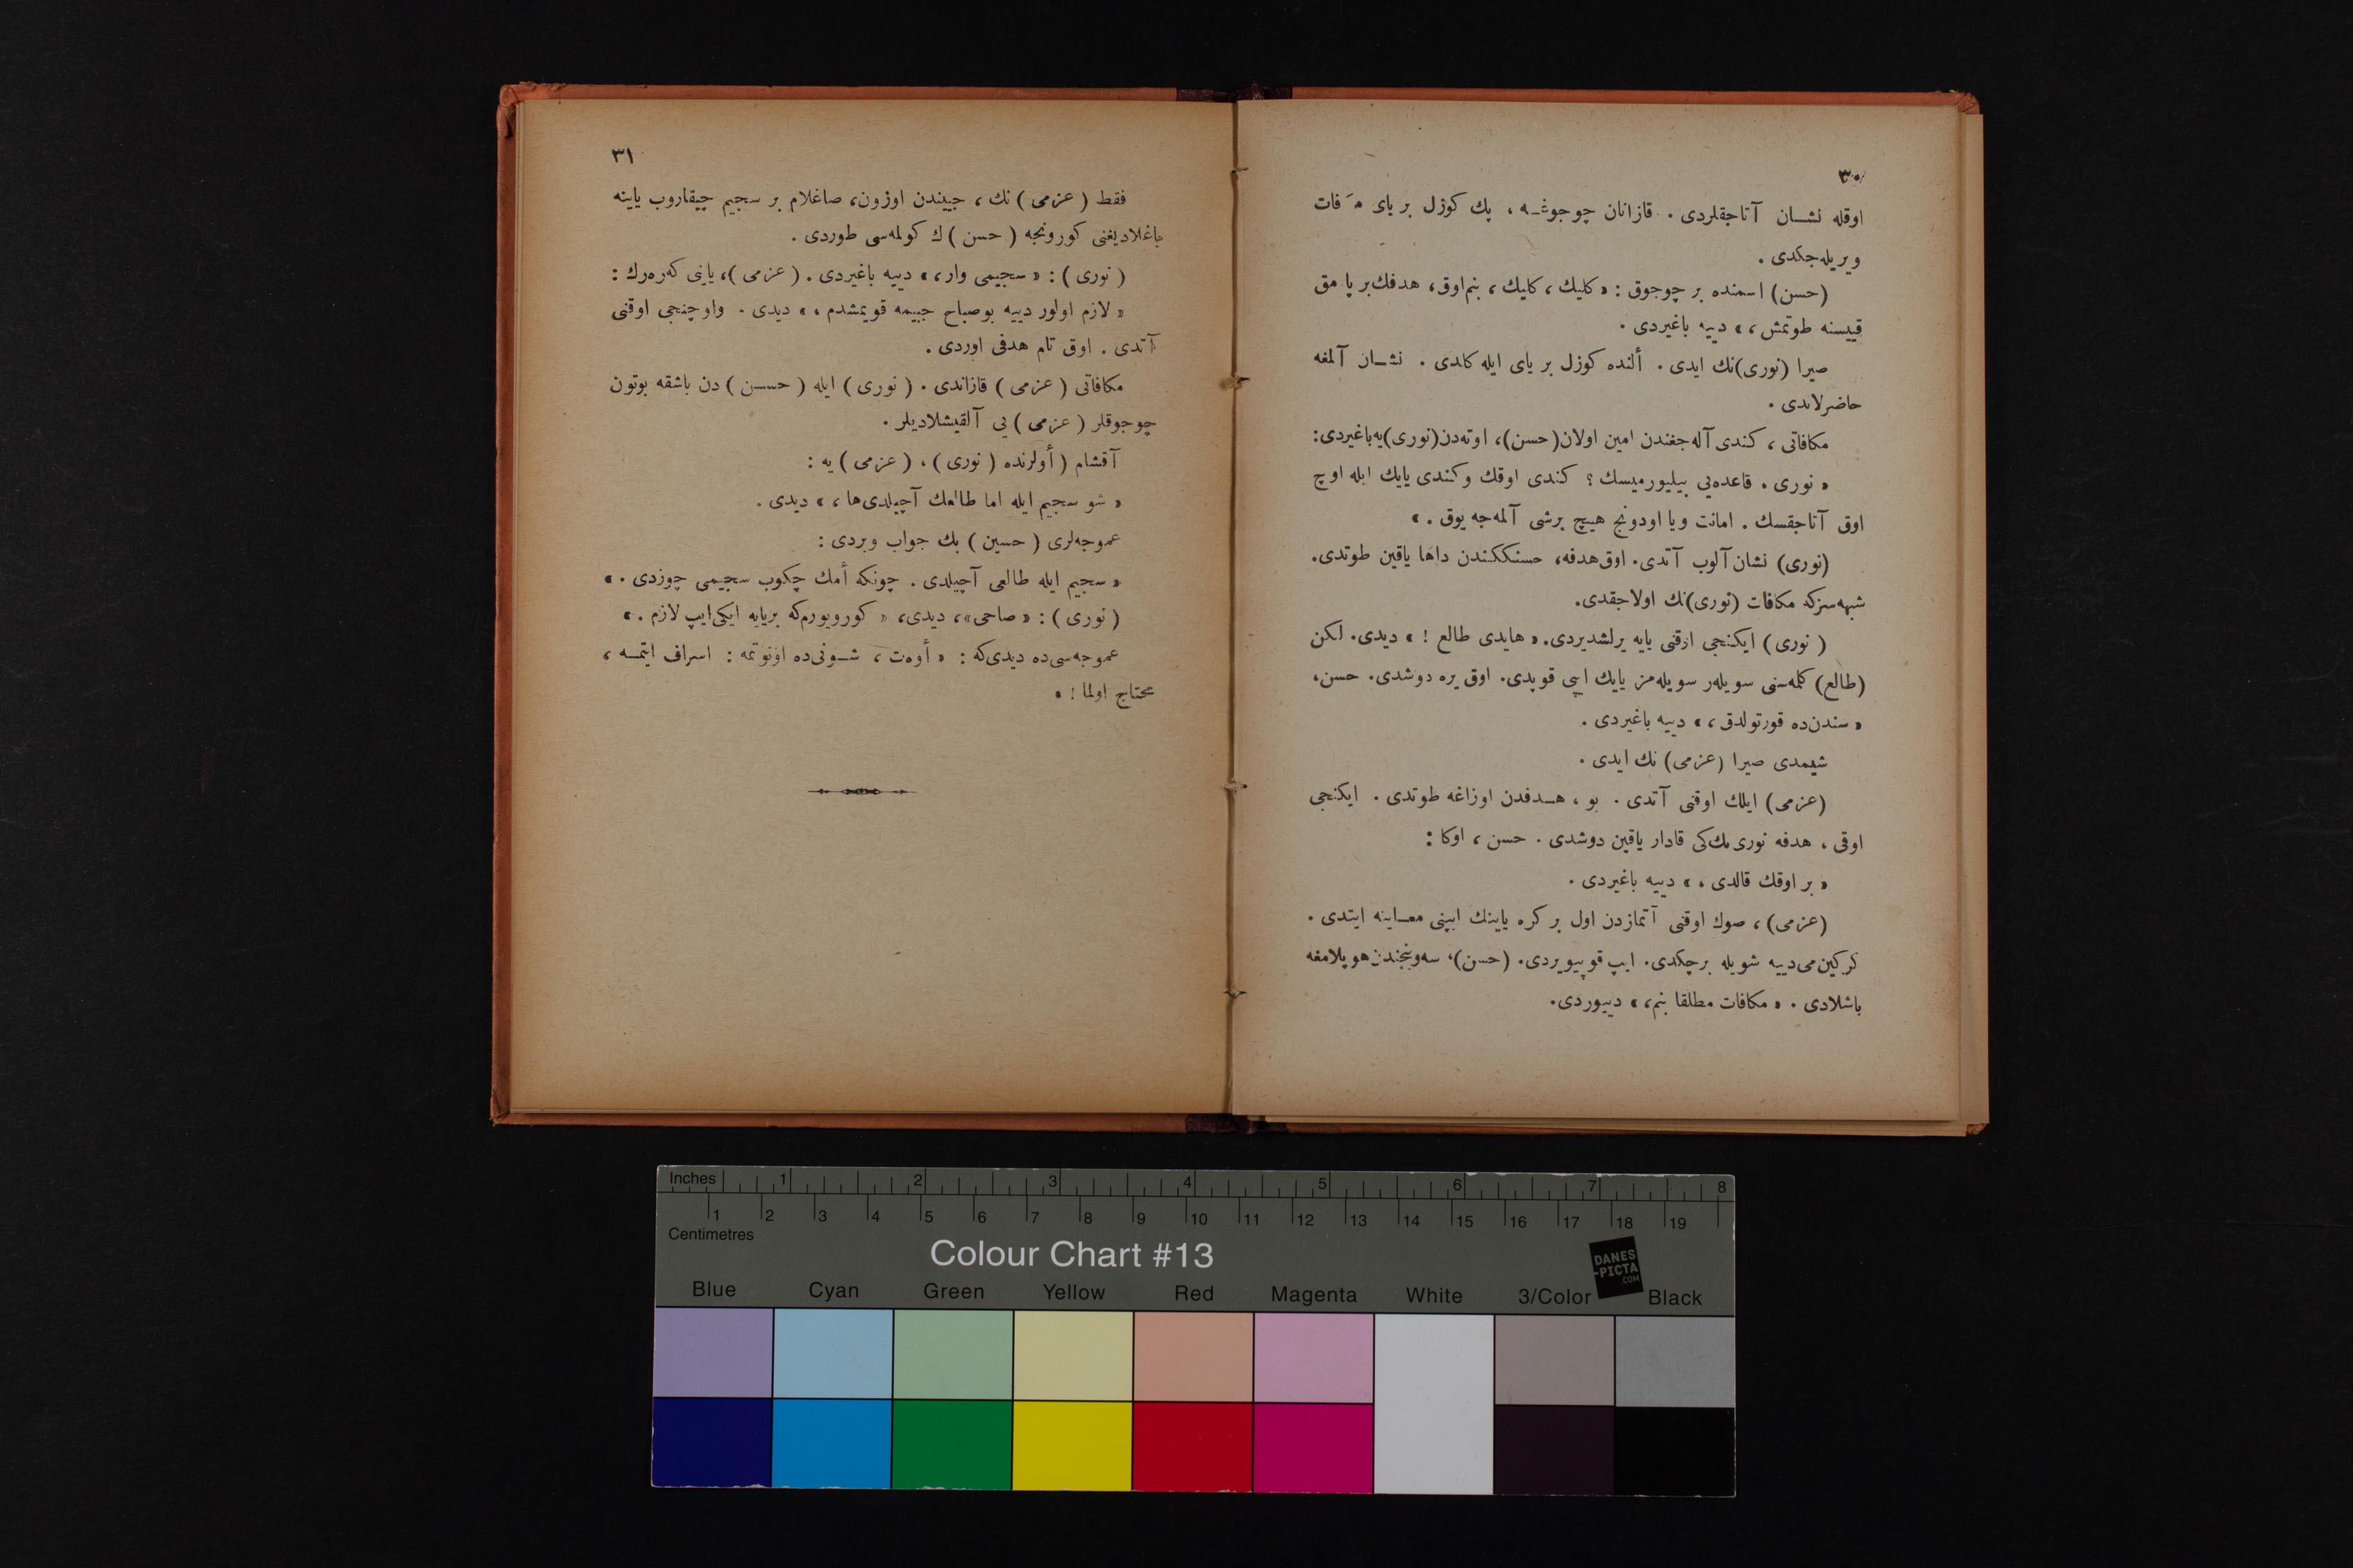 ٣٠
اوقله نشـان آتاجقلردی . قازانان چوجوغـه ، پك كوزل بر یای مـَـفات
ویریله جكدی .
(حسن) اسمنده بر چوجوق : « كلیك ، كلیك ، بنم اوق ، هدفك بر پارمق
قییسنه طوتمش ، » دییه باغیردی .
صیرا (نوری)نك ایدی . ألنده كوزل بر یای ایله كلدی . نشـان آلمغه
حاضرلاندی .
مكافاتی ، كندی آله جغندن امین اولان (حسن)، اوته دن (نوری)یه باغیردی:
« نوری . قاعده یی بیلیورمیسك ؟ كندی اوقك وكندی یایك ایله اوچ
اوق آتاجقسك . امانت ویا اودونج هیچ برشی آلمه جه یوق . »
(نوری) نشان آلوب آتدی. اوق هدفه، حسنككندن داها یاقین طوتدی.
شبهه سزكه مكافات (نوری)نك اولاجقدی.
( نوری) ایكنجی اوقنی یایه یرلشدیردی. « هایدی طالع ! » دیدی. لكن
(طالع) كلمه سنی سویلەر سویله مز یایك ایپی قوپدی. اوق یره دوشدی. حسن،
« سندن ده قورتولدق ، » دییه باغیردی .
شیمدی صیرا (عزمی) نك ایدی .
(عزمی) ایلك اوقنی آتدی . بو ، هـدفدن اوزاغه طوتدی . ایكنجی
اوقی ، هدفه نوری نك كی قادار یاقین دوشدی . حسن ، اوكا :
« بر اوقك قالدی ، » دییه باغیردی .
(عزمی) ، صوك اوقنی آتمازدن اول بر كره یاینك ایپنی معـاینه ایتدی .
كركین می دییه شویله برچكدی. ایپ قوپیویردی. (حسن)، سه وینجندن هوپلامغه
باشلادی . « مكافات مطلقا بنم ، » دییوردی.
٣١
فقط ( عزمی ) نك ، جیبندن اوزون، صاغلام بر سجیم چیقاروب یاینه
باغلادیغنی كورونجه ( حسن ) ك كولمه سی طوردی .
( نوری ) : « سجیمی وار ، » دییه باغیردی . ( عزمی )، یاینی كه ره رك :
« لازم اولور دییه بوصباح جیبمه قویمشدم ، » دیدی . واوچنجی اوقنی
آتدی . اوق تام هدفی اوردی .
مكافاتی ( عزمی ) قازاندی . ( نوری ) ایله ( حسـن ) دن باشقه بوتون
چوجوقلر ( عزمی ) یی آلقیشلادیلر .
آقشام ( أولرنده ( نوری ) ، ( عزمی ) یه :
« شو سجیم ایله اما طالعك آچیلدی ها ، » دیدی .
عموجه لری ( حسین ) بك جواب ویردی :
« سجیم ایله طالعی آچیلدی . چونكه أمك چكوب سجیمی چوزدی . »
( نوری ) : « صاحی »، دیدی، « كورویورم كه بریایه ایكی ایپ لازم . »
عموجه سی ده دیدی كه : « أوه ت ، شـونی ده اونوتمه : اسراف ایتمـه ،
محتاج اولما ! »
Inches 1 2 3 4 5 6 7 8
1 2 3 4 5 6 7 8 9 10 11 12 13 14 15 16 17 18 19
Centimetres
Colour Chart #13
DANES
-PICTA
.COM
Blue Cyan Green Yellow Red Magenta White 3/Color Black